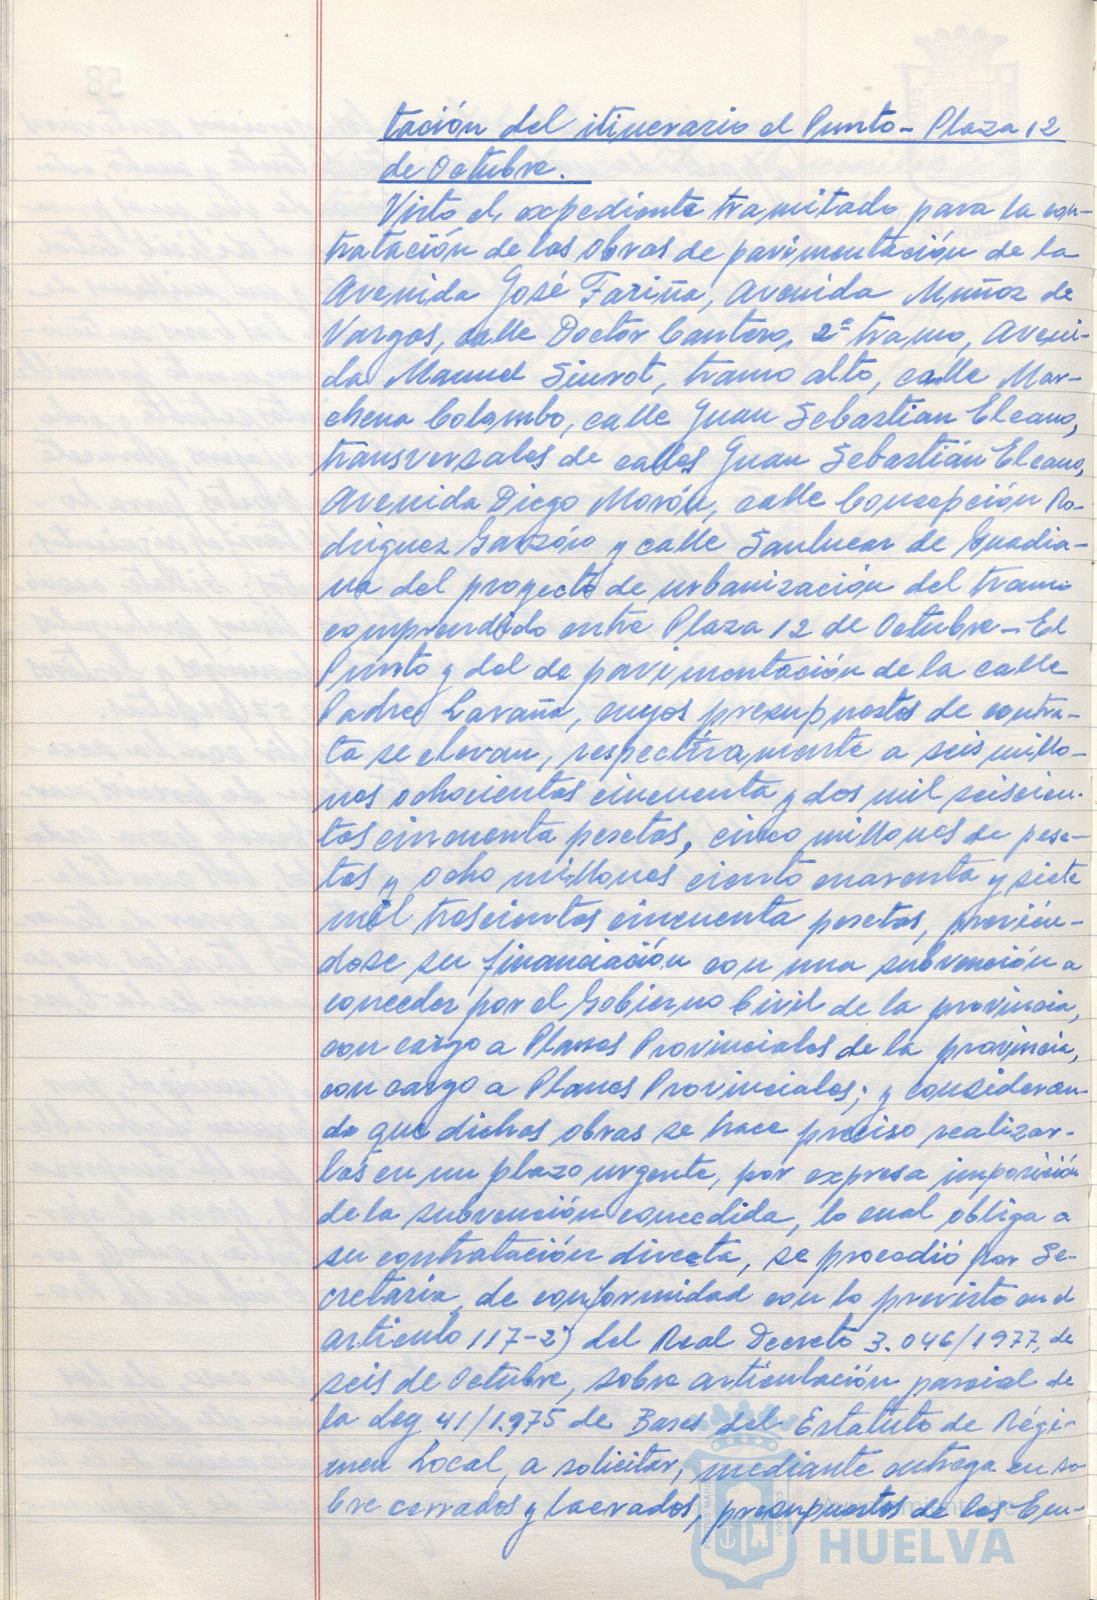 tación del itinerario el Punto - Plaza 12
de Octubre.
Visto el expediente tramitado para la con-
tratación de las obras de pavimentación de la
Avenida José Fariña, Avenida Muñoz de
Vargas, calle Doctor Cantero, 2º tramo, Aveni-
da Manuel Siurot, tramo alto, calle Mar-
chena Colombo, calle Juan Sebastian Elcano,
transversales de calles Juan Sebastián Elcano,
Avenida Diego Morón, calle Concepción Ro-
driguez Garzón y calle Sanlucar de Guadia-
na del proyecto de urbanización del tramo
comprendido entre Plaza 12 de Octubre - El
Punto y del de pavimentación de la calle
Padre Laraña, cuyos presupuestos de contra-
ta se elevan, respectivamente a seis millo-
nes ochocientas cincuenta y dos mil seiscien-
tas cincuenta pesetas, cinco millones de pese-
tas y ocho millones ciento cuarenta y siete
mil trescientas cincuenta pesetas, previén-
dose su financiación con una subvención a
conceder por el Gobierno Civil de la provincia,
con cargo a Planes Provinciales de la provincia,
con cargo a Planes Provinciales; y consideran-
do que dichas obras se hace preciso realizar-
las en un plazo urgente, por expresa imposición
de la subvención concedida, lo cual obliga a
su contratación directa, se procedió por Se-
cretaría, de conformidad con lo previsto en el
articulo 117-2º) del Real Decreto 3.046/1977, de
seis de Octubre, sobre articulación parcial de
la Ley 41/1.975 de Bases del Estatuto de Régi-
men Local, a solicitar, mediante entrega en so-
bre cerrados y lacrados, presupuestos de las Em-
HUELVA